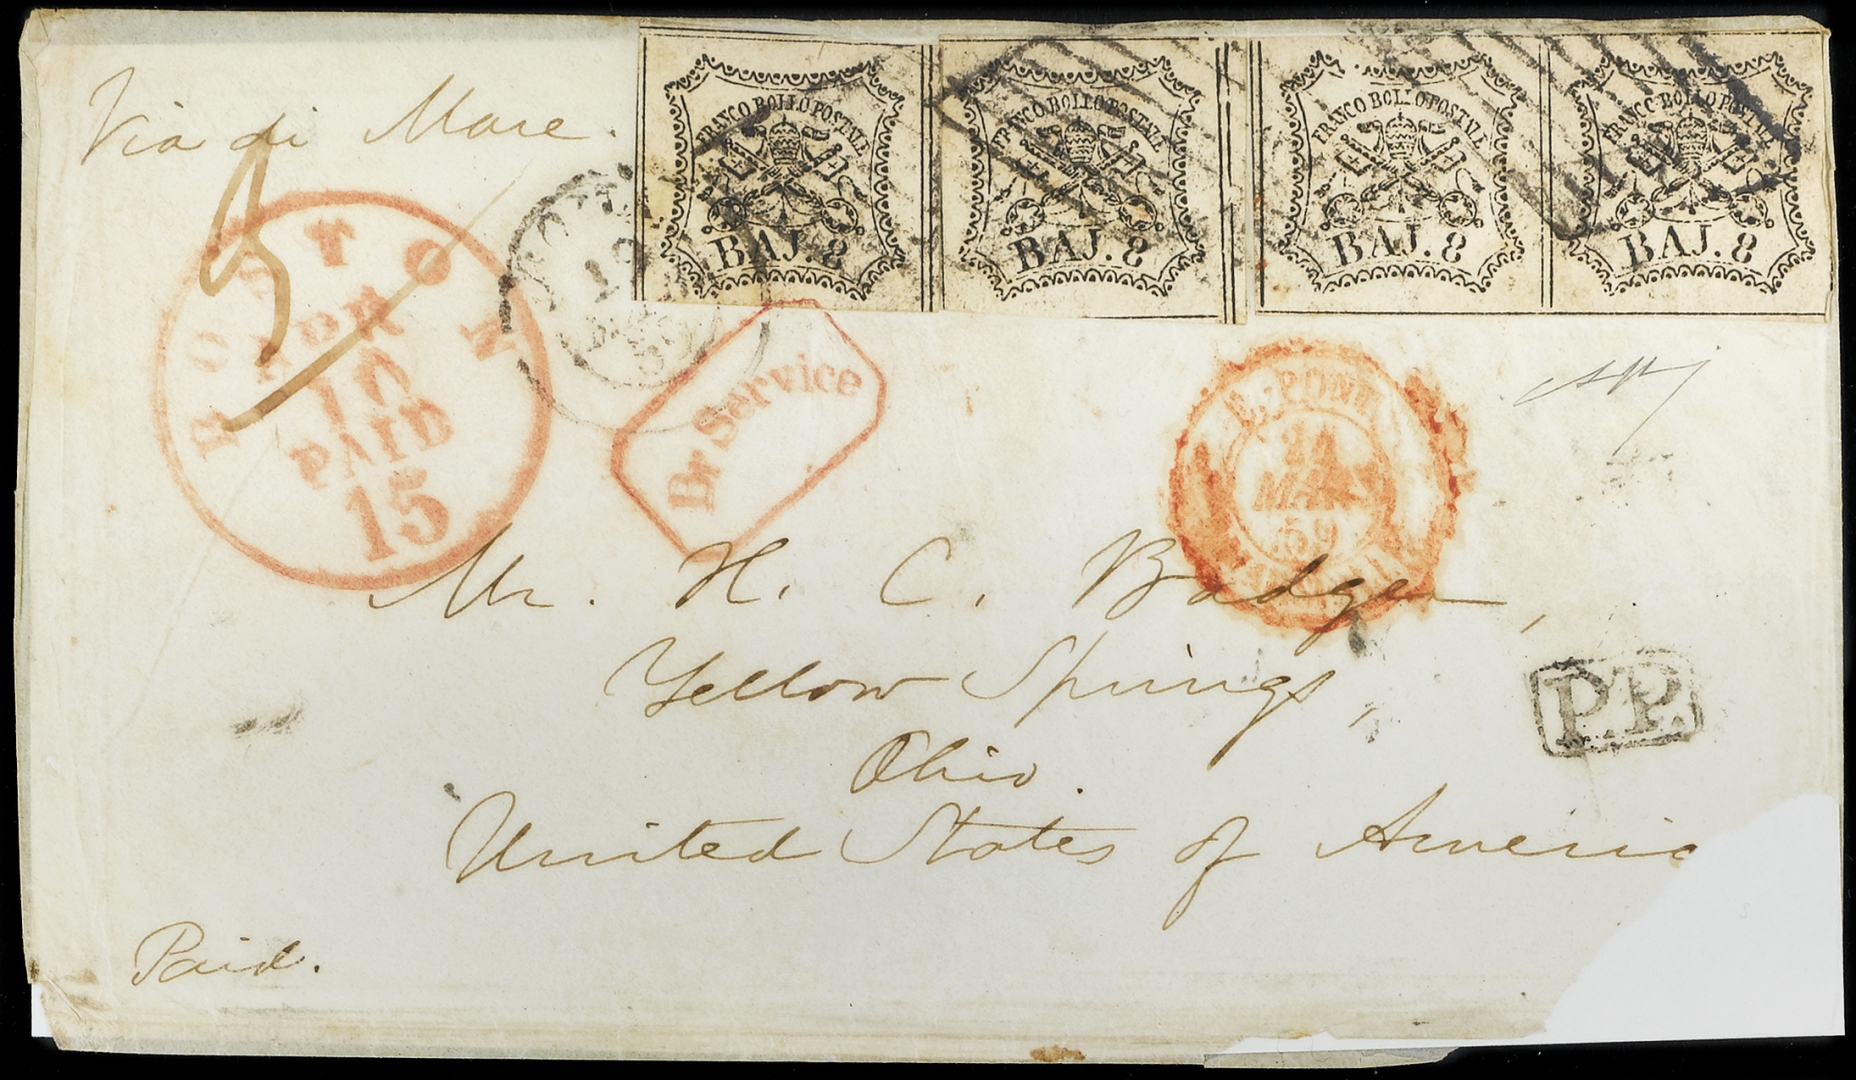 Via di Mare.
FRANCO BOLLO POSTALE
BAJ. 8
FRANCO BOLLO POSTALE
BAJ. 8
FRANCO BOLLO POSTALE
BAJ. 8
FRANCO BOLLO POSTALE
BAJ. 8
BOSTON
APR
10
PAID
15
ROMA
59
Br Service
E. PONT.
24
MARS
59
Mr. H. C. Badger,
Yellow Springs,
Ohio.
United States of America
P.P.
Paid.